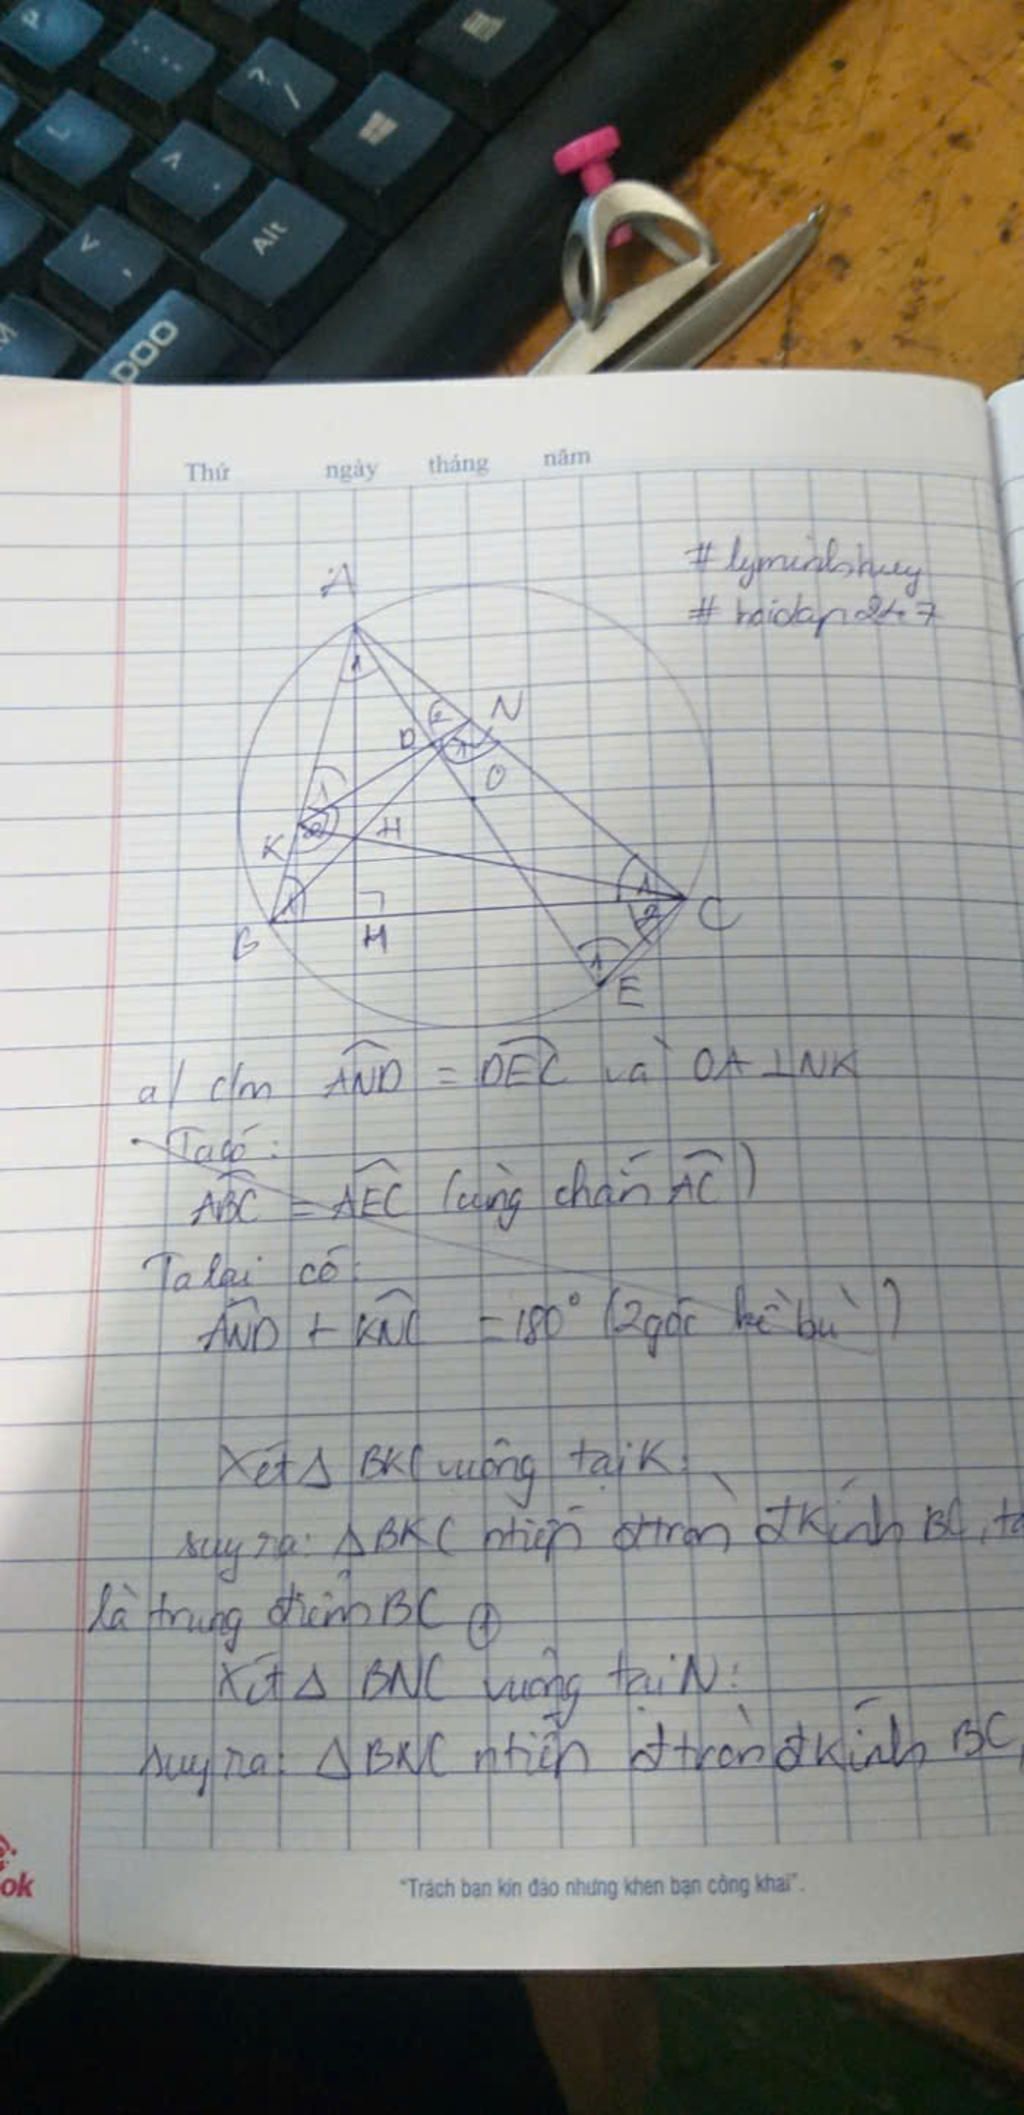 P
?
/
L
^
.
Alt
<
,
M
000
Thứ ngày tháng năm
# lyminhhuy
# hoidap247
A
1
2
N
D
1
O
1
K
2
H
1
1
C
2
B
M
1
E
a/ c/m AND = DEC và OA ⊥ NK
Ta có:
ABC = AEC (cùng chắn AC)
Ta lại có:
AND + KNC = 180° (2 góc kề bù)
Xét Δ BKC vuông tại K:
suy ra: Δ BKC ntiếp đtròn đkính BC,
là trung điểm BC ①
Xét Δ BNC vuông tại N:
suy ra: Δ BNC ntiếp đtròn đkính BC,
ok
"Trách bạn kín đáo nhưng khen bạn công khai".